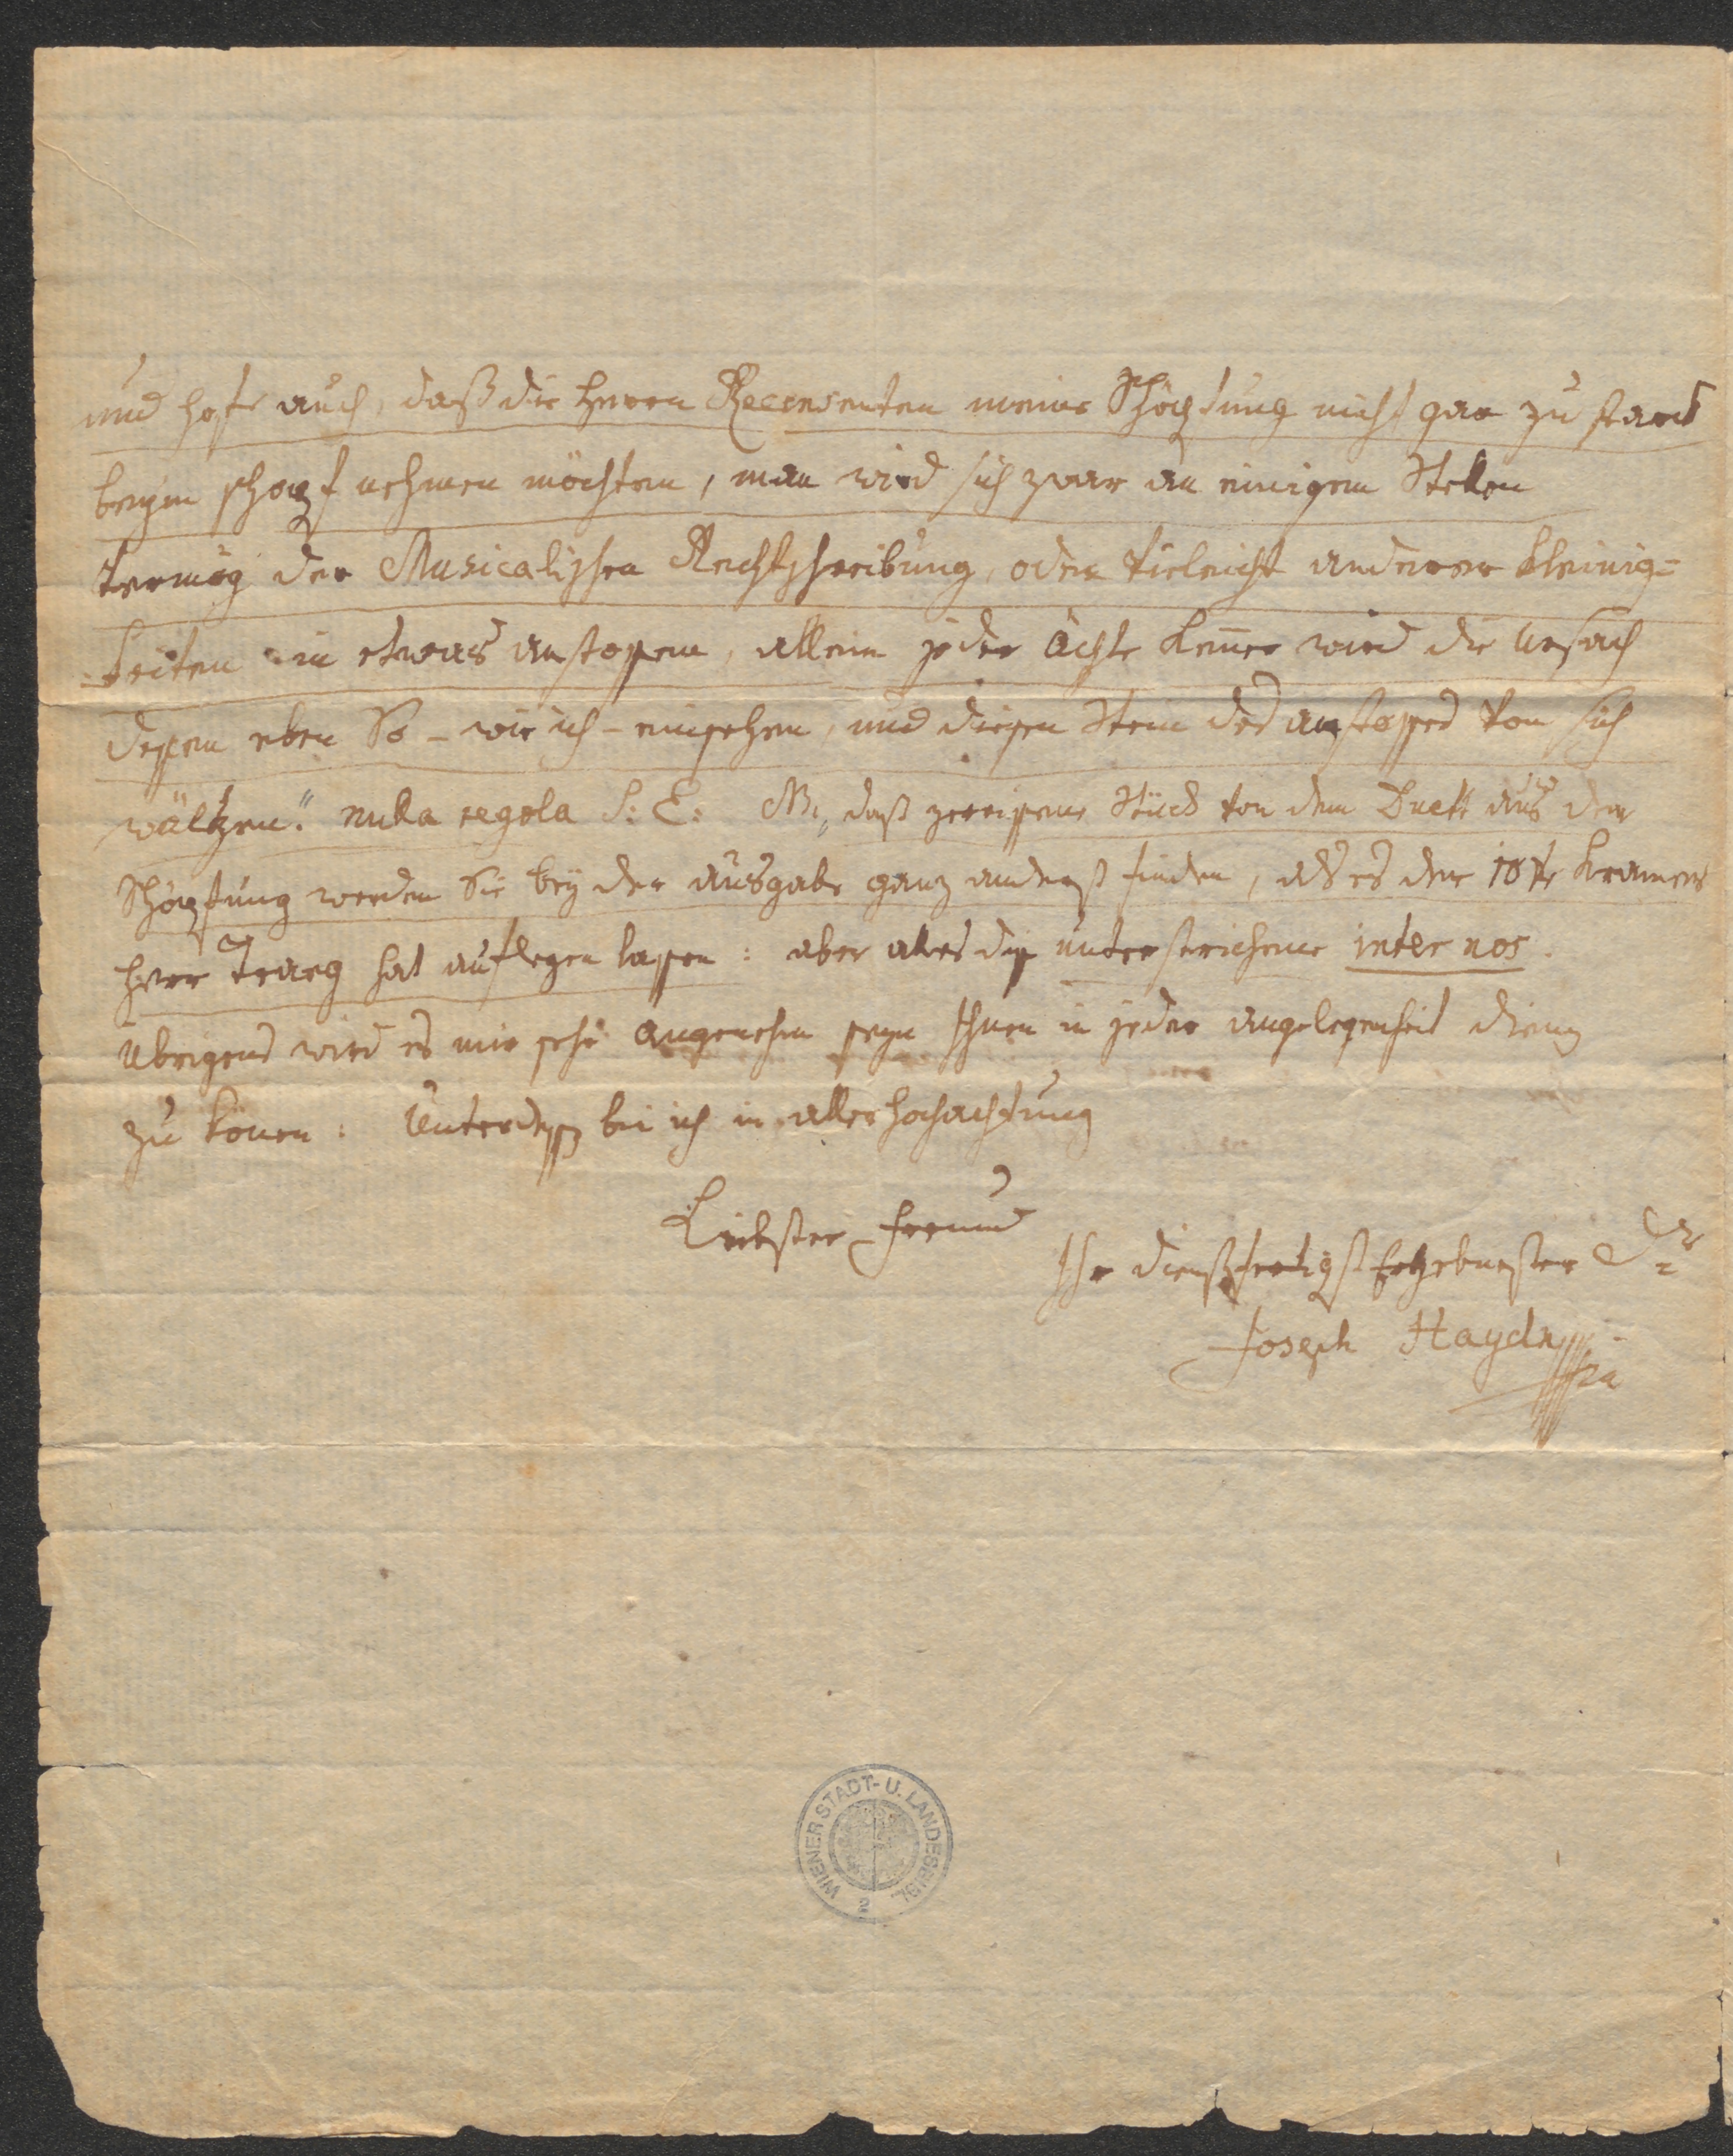 und hofe auch, daß die Herrn Recensenten meine Schöpfung nicht gar zu starck
beym schopf nehmen möchten, man wird sich zwar an einigen Stellen
vermög der Musicalischen Rechtschreibung, oder vieleicht anderer kleinig=
keiten in etwas anstossen, allein jeder ächte Kenner wird die Ursach
dessen eben So – wie ich – einsehen, und diesen Stein des anstosses von sich
wältzen." nulla regola S: E: NB: daß zerrissene Stück von dem Duett aus der
Schöpfung werden Sie bey der ausgabe ganz anderst finden, als es der 10te Kramer
Herr Traeg hat auflegen lassen: aber alles diß unterstrichene inter nos.
übrigens wird es mir sehr angenehm seyn Ihnen in jeder angelegenheit dienen
zu könen: Unterdessen bin ich in aller hochachtung
Liebster Freund
Ihr dienstfertigst Ergebnester Dr
Joseph Haydn mpria
WIENER STADT- U. LANDESBIBL.
2